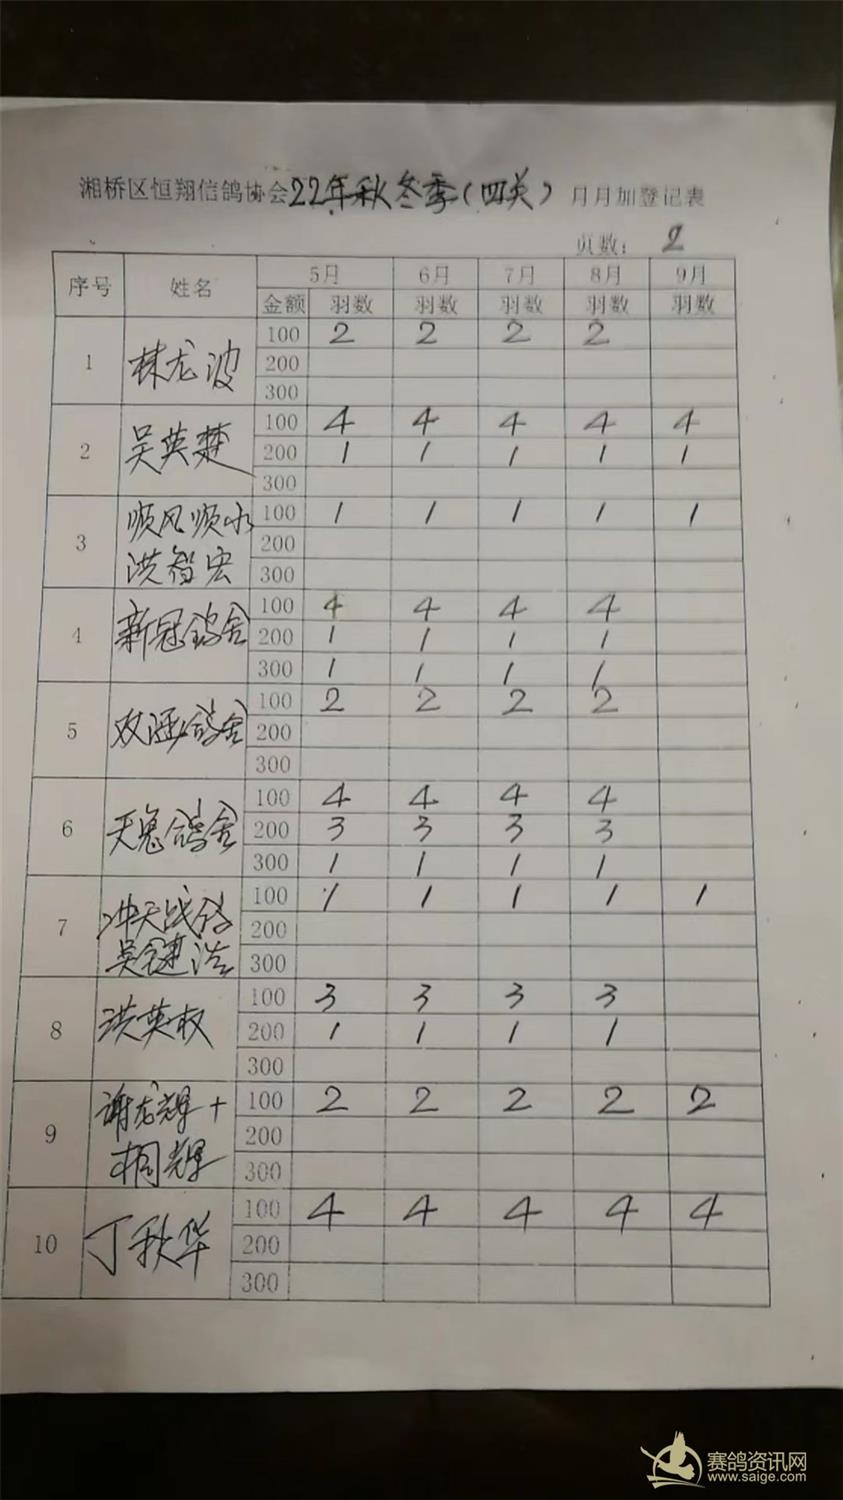 湘桥区恒翔信鸽协会22年秋冬季(四关)月月加登记表
页数: 2
序号 姓名 5月 6月 7月 8月 9月
金额 羽数 羽数 羽数 羽数 羽数
1 林龙波 100 2 2 2 2
200
300
2 吴英楚 100 4 4 4 4 4
200 1 1 1 1 1
300
3 顺风顺水 100 1 1 1 1 1
洪智宏 200
300
4 新冠鸽舍 100 4 4 4 4
200 1 1 1 1
300 1 1 1 1
5 双涵鸽舍 100 2 2 2 2
200
300
6 天鬼鸽舍 100 4 4 4 4
200 3 3 3 3
300 1 1 1 1
7 冲天战鸽 100 1 1 1 1 1
吴健浩 200
300
8 洪英权 100 3 3 3 3
200 1 1 1 1
300
9 谢龙辉+ 100 2 2 2 2 2
桐辉 200
300
10 丁秋华 100 4 4 4 4 4
200
300
赛鸽资讯网
www.saige.com